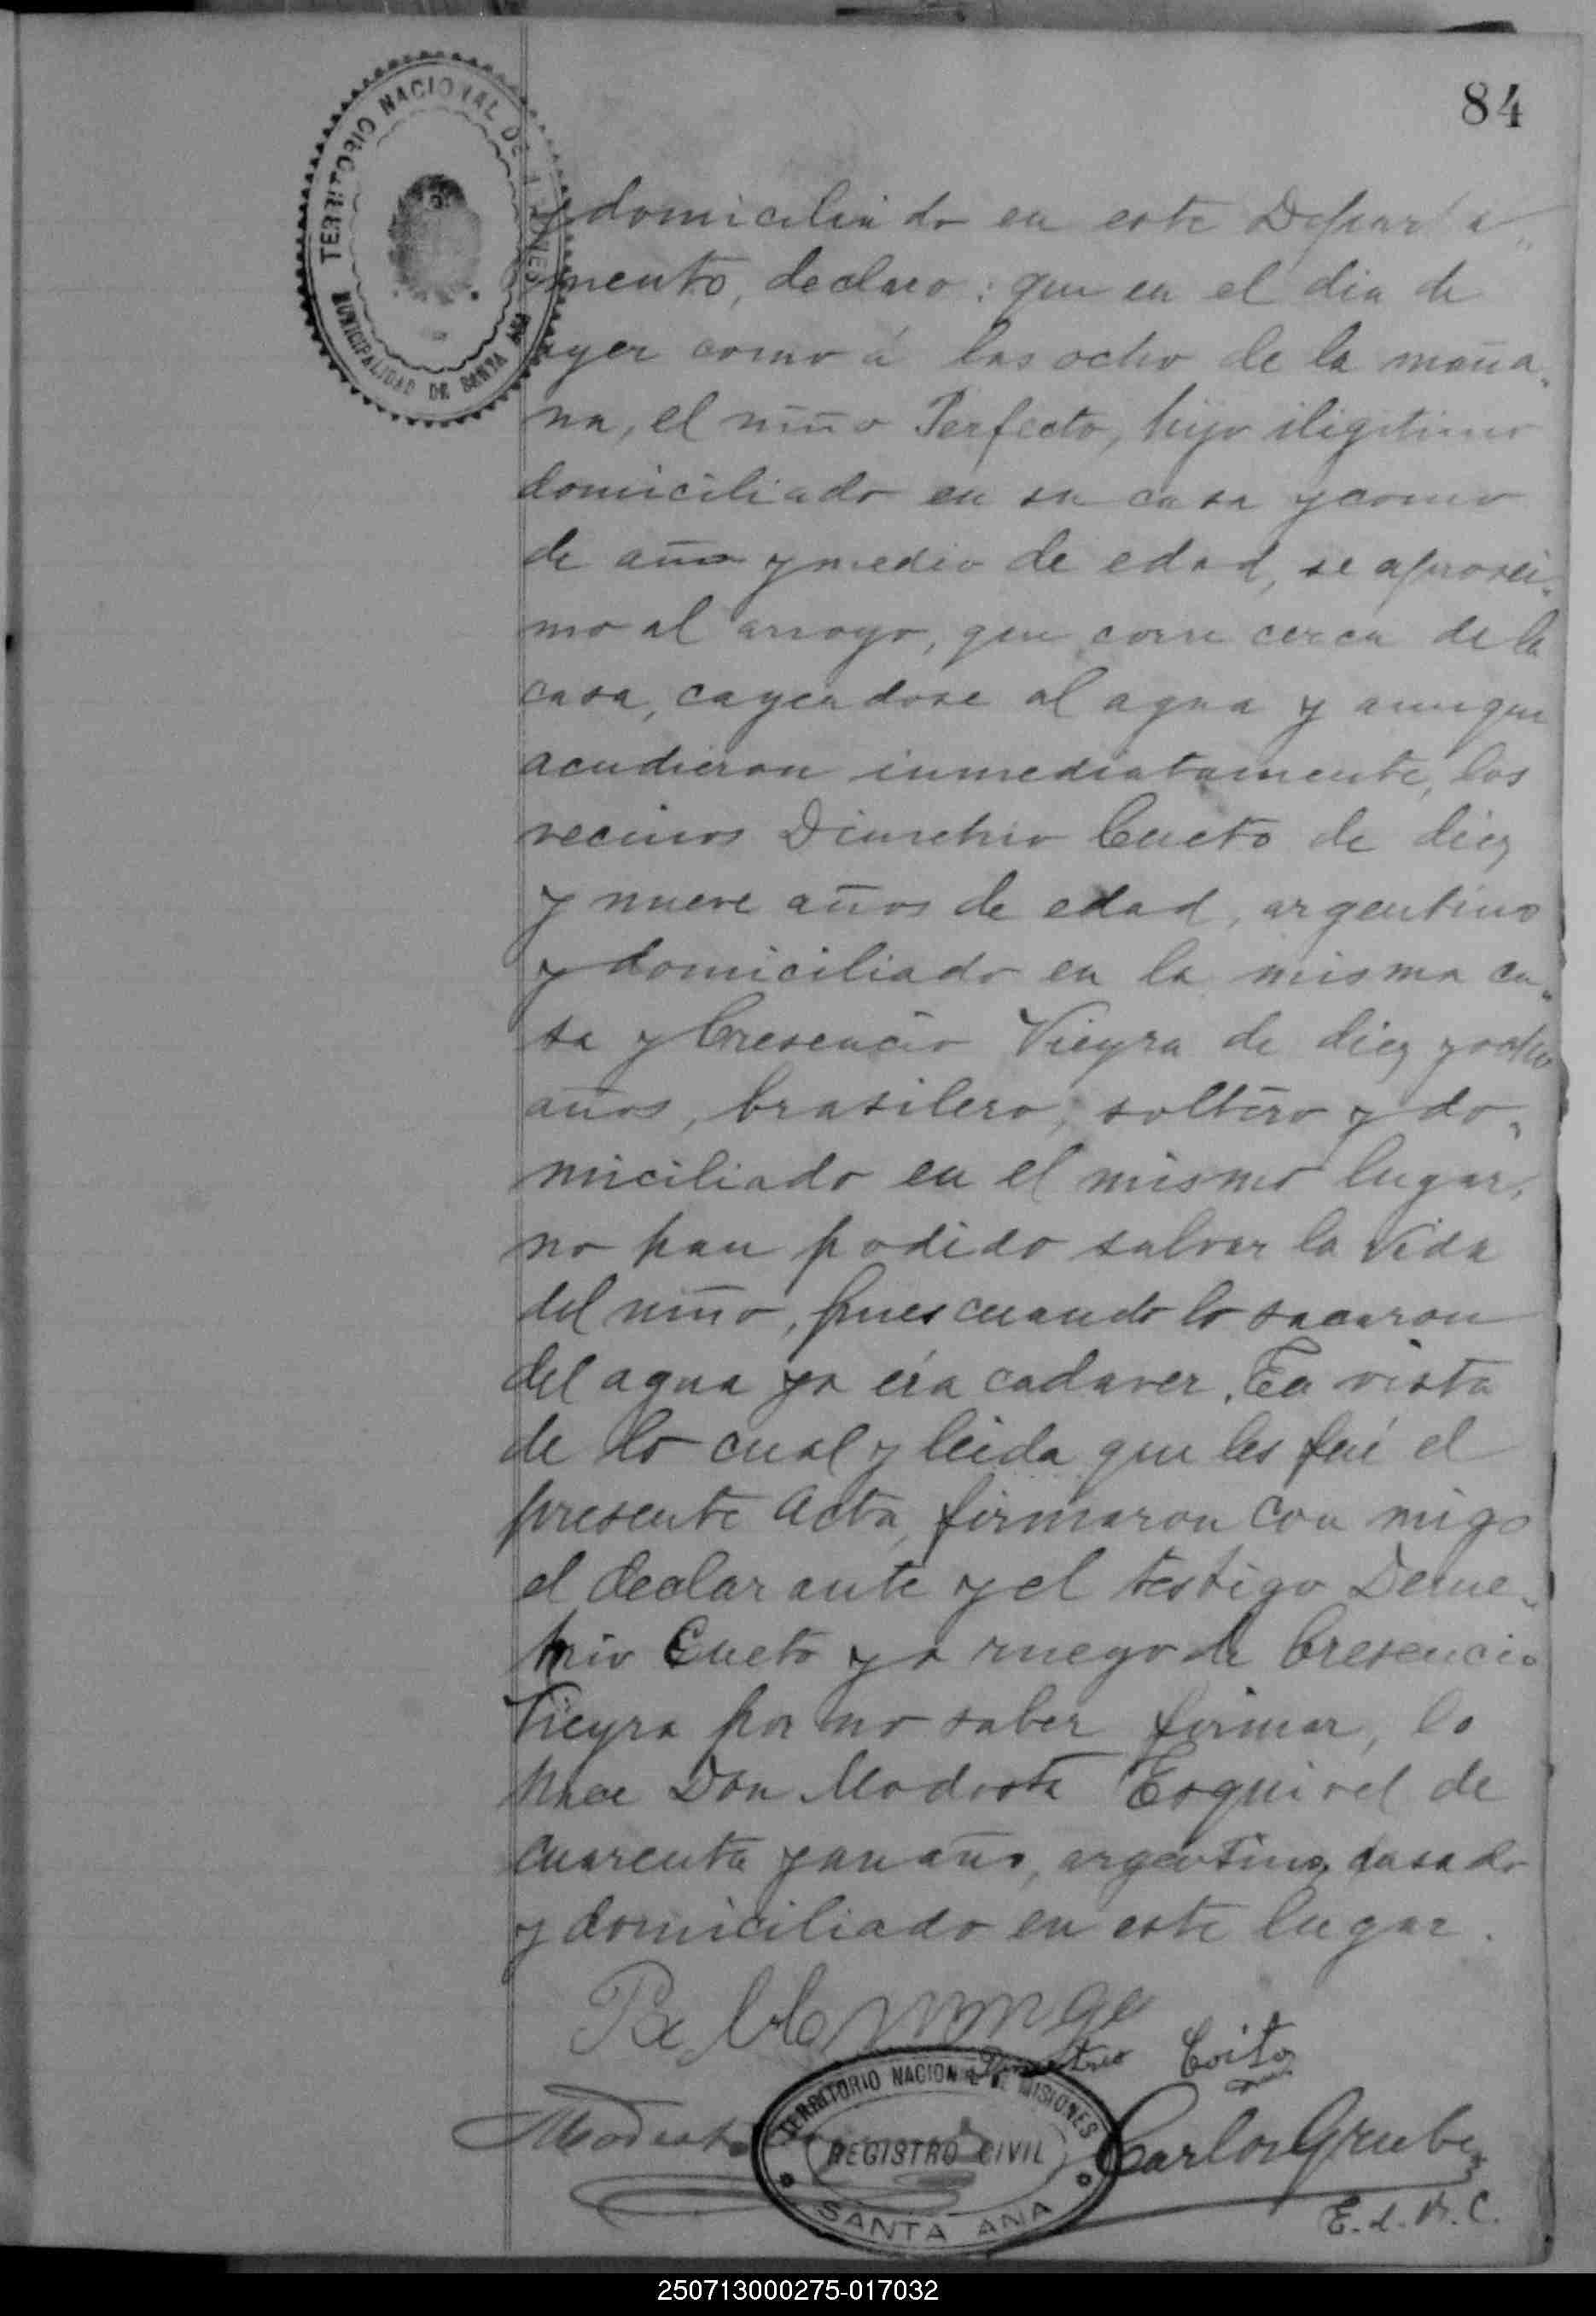 84
TERRITORIO NACIONAL DE MISIONES
MUNICIPALIDAD DE SANTA ANA
y domiciliado en este Departa„
mento, declaro: que en el dia de
ayer como á las ocho de la maña„
na, el niño Perfecto, hijo iligitimo
domiciliado en su casa y como
de año y medio de edad, se aproxi„
mo al arroyo, que corre cerca de la
casa, cayendose al agua y aunque
acudieron inmediatamente, los
vecinos Dimetrio Cueto de diez
y nueve años de edad, argentino
y domiciliado en la misma ca„
sa y Cresencio Vieyra de diez y ocho
años, brasilero, soltero y do„
miciliado en el mismo lugar,
no han podido salvar la vida
del niño, pues cuando lo sacaron
del agua ya era cadaver. En vista
de lo cual y leida que les fué el
presente Acta, firmaron con migo
el declarante y el testigo Deme„
trio Cueto y a ruego de Cresencio
Vieyra por no saber firmar, lo
hace Don Modesto Esquivel de
cuarenta y un año, argentino, casado
y domiciliado en este lugar.
Demetrio Coito
Modesto
Carlos Grube
E. d. R. C.
TERRITORIO NACIONAL DE MISIONES
REGISTRO CIVIL
SANTA ANA
250713000275-017032